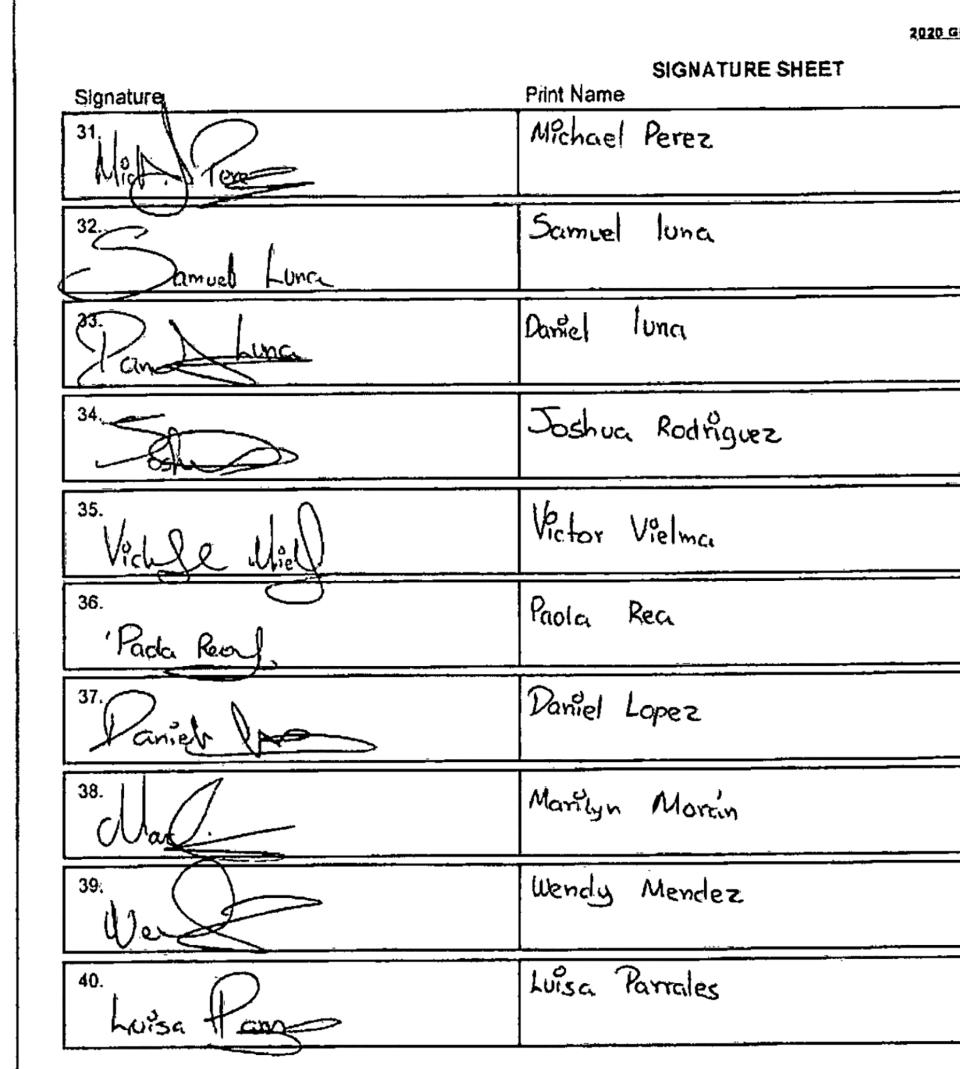 2020 G
SIGNATURE SHEET
Signature Print Name
31. Michael Perez
32. Samuel Luna Samuel luna
33. Luna Daniel luna
34. Joshua Rodriguez
35. Victor Vielma
36. Paola Rea
37. Daniel Daniel Lopez
38. Marilyn Morán
39. Wendy Mendez
40. Luisa Luisa Parrales